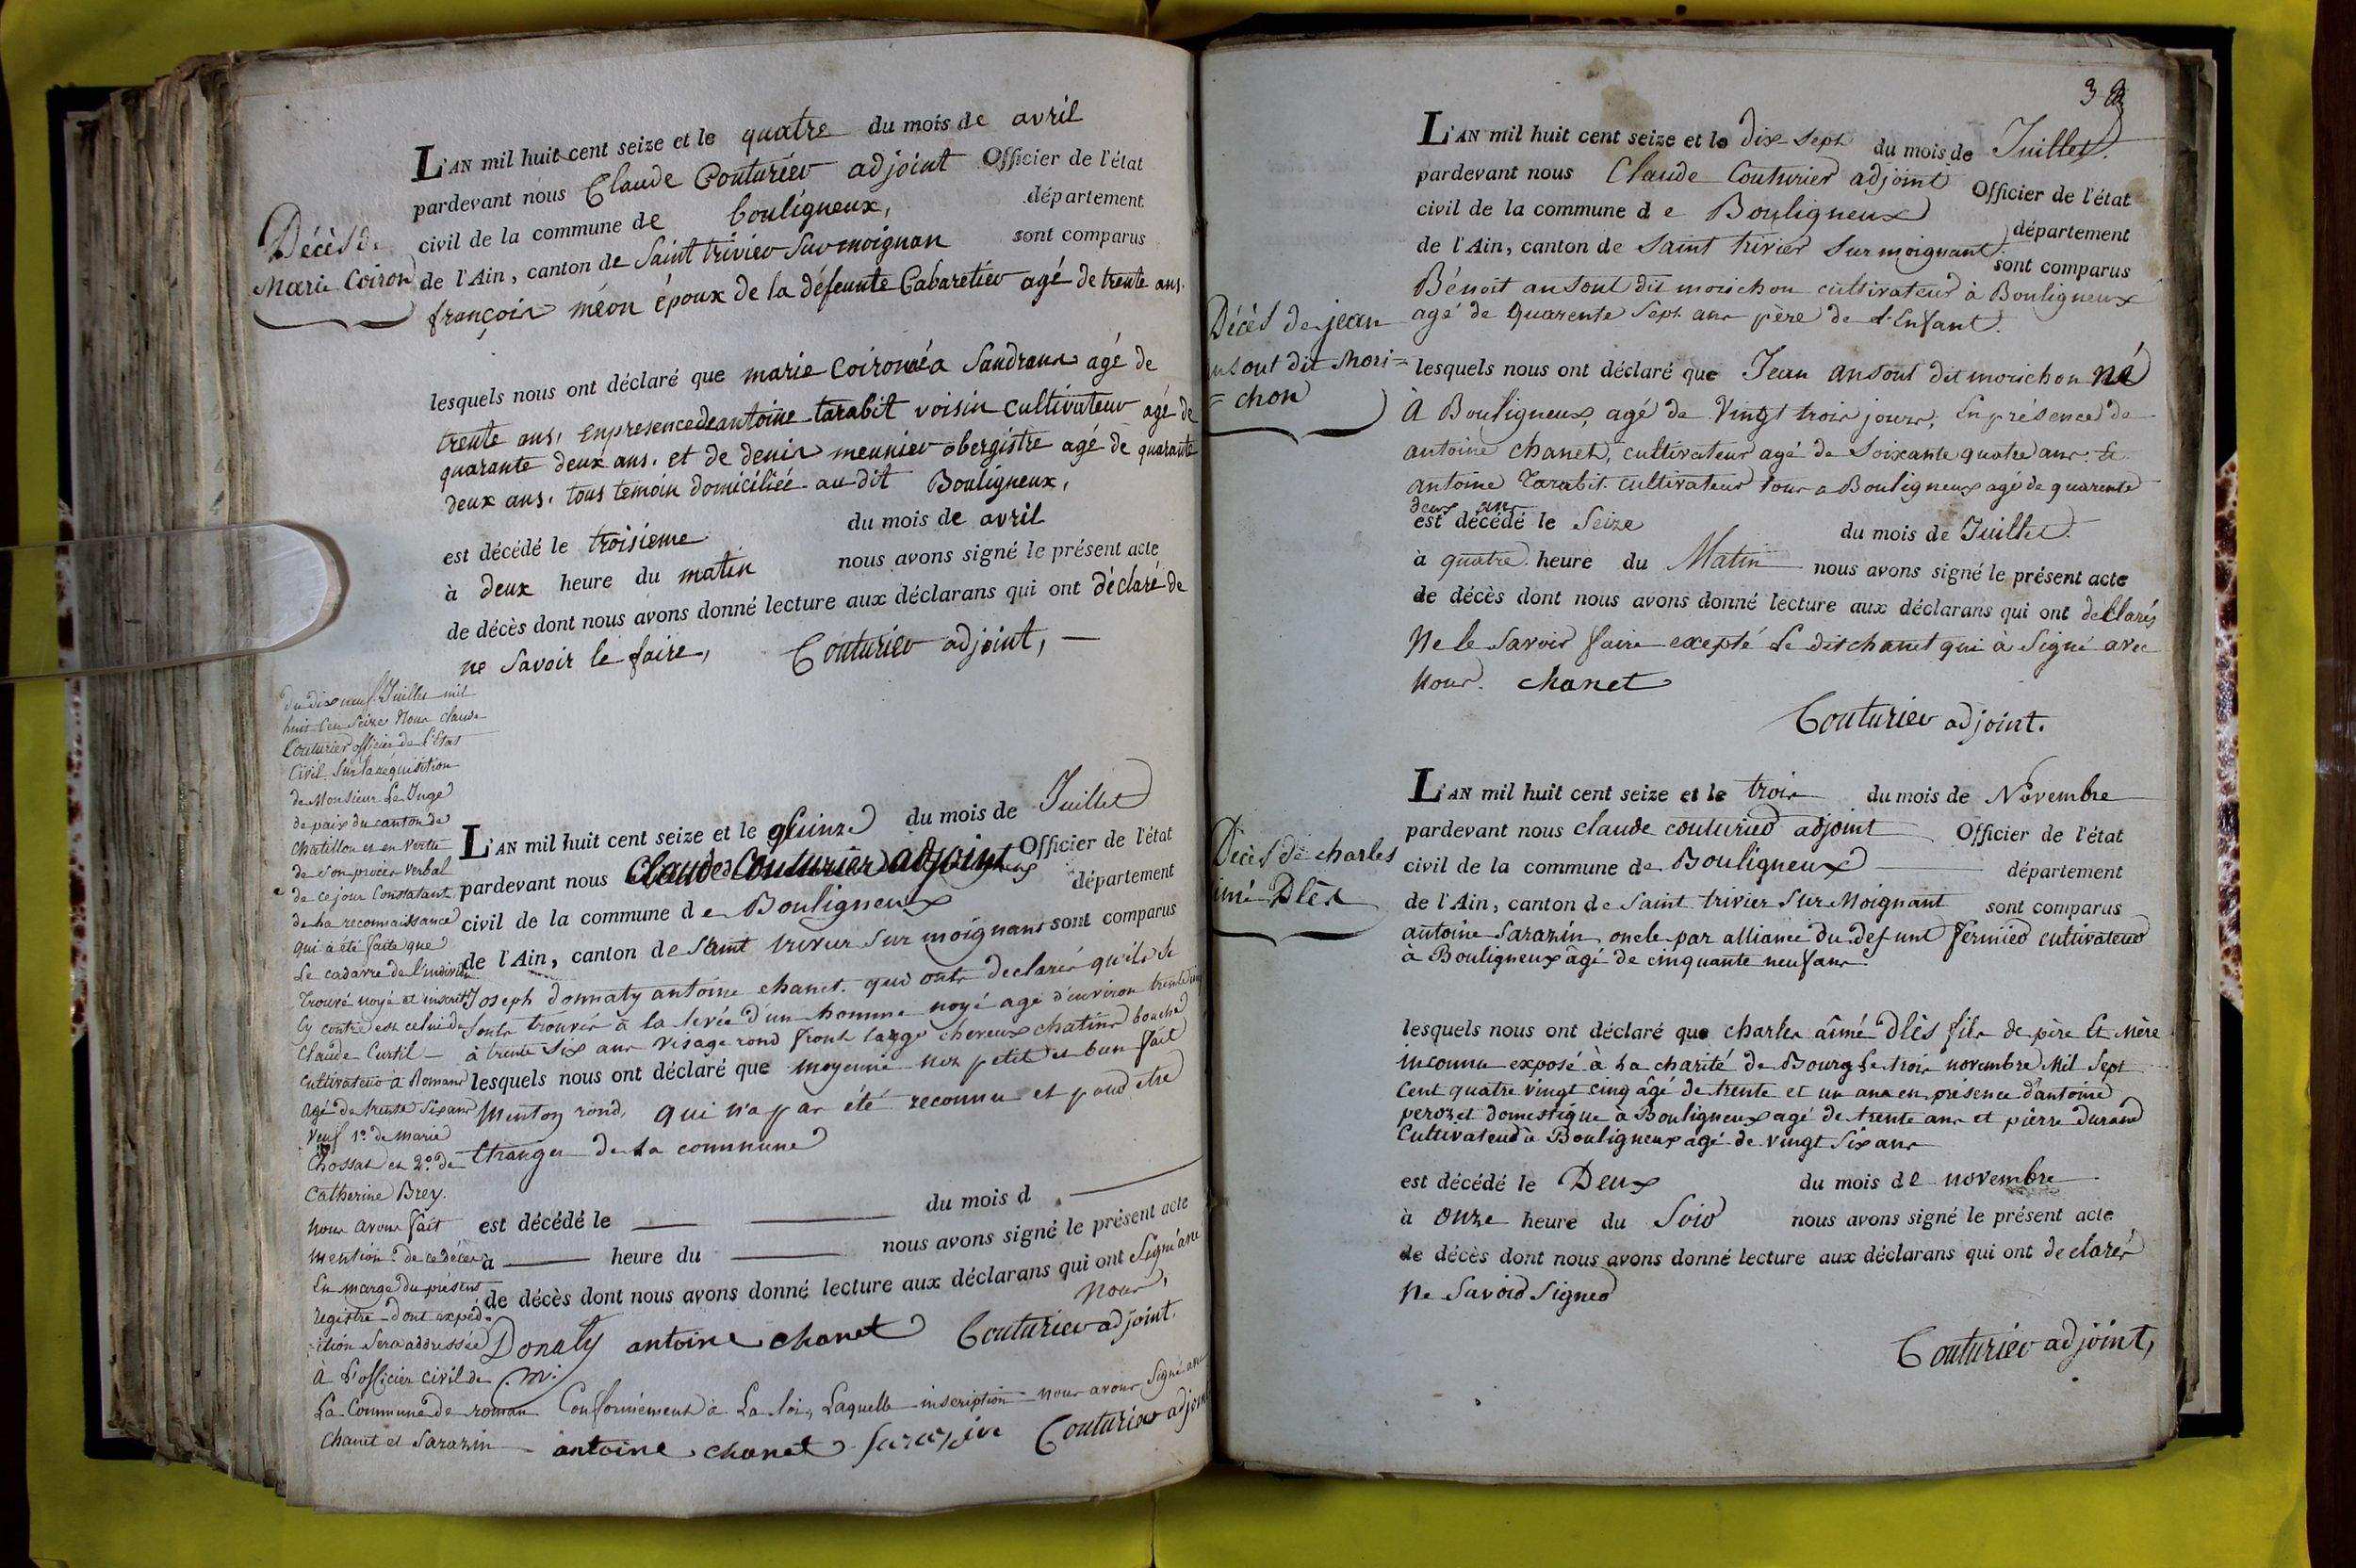 L'AN mil huit cent seize et le quatre du mois de avril
pardevant nous Claude Couturier adjoint Officier de l'état
civil de la commune de bouligneux, département
de l'Ain, canton de Saint trivier Sur moignan sont comparus
françois méon époux de la défeunte Cabaretier agé de trente ans.
Décès de
Marie Coiron
lesquels nous ont déclaré que marie Coiron né a Sandrans agé de
trente ans, en presence de antoine tarabit voisin cultivateur agé de
quarante deux ans. et de denis meunier obergistre agé de quarante
deux ans. tous temoin domiciliée au dit Bouligneux,
est décédé le troisieme du mois de avril
à deux heure du matin nous avons signé le présent acte
de décès dont nous avons donné lecture aux déclarans qui ont déclaré de
ne Savoir le faire, Couturier adjoint,
du dix neuf Juillet mil
huit Cen Seize Nous claude
Couturier officier de l'Etat
Civil Sur la requisition
de Monsieur Le Juge
de paix du canton de
chatillon et en Vertu
de Son procès verbal
de ce jour Constatant
de La reconnaissance
qui à été faite que
Le cadavre de l'individu
trouvé noyé et inscrit
Cy contre est celui de
Claude Curtil
Cultivateur à Romans
agé de trente Six ans
Veuf 1º de Marie
Chossat et 2º de
Catherine Brey.
Nous avons fait
mention de ce décès
En marge du présent
registre dont expéd-
-ition Sera addressée
à L'officier civil de
La Commune de roman Conformément à La loi, Laquelle inscription nous avons Signé avec
Chanet et Sarazin antoine chanet Sarazin Couturier adjoint
L'AN mil huit cent seize et le quinze du mois de Juillet
pardevant nous Claude Couturier adjoint Officier de l'état
civil de la commune de Bouligneux département
de l'Ain, canton de Saint trivier Sur moignans sont comparus
Joseph donnaty antoine chanet qui ont declarés qu'ils se
Sonts trouvés à la levée d'un homme noyé agé d'environ trente cinq
à trente Six ans visage rond front large cheveux chatins bouche
lesquels nous ont déclaré que moyenne nez petit et bien fait
Menton rond, qui n'a pas été reconnu et pour être
Etranger de La commune
est décédé le du mois d
à heure du nous avons signé le présent acte
de décès dont nous avons donné lecture aux déclarans qui ont Signé avec
Nous,
Donaty antoine chanet Couturier adjoint.
38
L'AN mil huit cent seize et le dix Sept du mois de Juillet.
pardevant nous Claude Couturier adjoint Officier de l'état
civil de la commune de Bouligneux département
de l'Ain, canton de Saint trivier Sur moignant sont comparus
Bénoit ansout dit morichon cultivateur à Bouligneux
agé de Quarente Sept ans père de L'Enfant.
Décès de jean
ansout dit Mori=
=chon
lesquels nous ont déclaré que Jean ansout dit morichon né
à Bouligneux, agé de Vingt trois jours, En présence de
antoine chanet, cultivateur agé de Soixante quatre ans. Et
antoine Tarabit cultivateur tous a Bouligneux agé de quarente
deux ans
est décédé le Seize du mois de Juillet.
à quatre heure du Matin nous avons signé le présent acte
de décès dont nous avons donné lecture aux déclarans qui ont declarés
Ne le Savoir faire excepté Le dit chanet qui à Signé avec
Nous. chanet
Couturier adjoint.
L'AN mil huit cent seize et le trois du mois de Novembre
pardevant nous claude couturier adjoint Officier de l'état
civil de la commune de Bouligneux département
de l'Ain, canton de Saint trivier Sur Moignant sont comparus
antoine Sarazin oncle par alliance du defunt fermier cultivateur
à Bouligneux âgé de cinquante neuf ans.
Décès de charles
aimé Dlès
lesquels nous ont déclaré que charles aîmé Dlès fils de père Et Mère
inconnu exposé à La charité de Bourg Le trois novembre Mil Sept
Cent quatre vingt cinq âgé de trente et un ans en présence d'antoine
perozet domestique à Bouligneux agé de trente ans et pierre durand
Cultivateur à Bouligneux agé de vingt Six ans
est décédé le Deux du mois de novembre
à onze heure du Soir nous avons signé le présent acte
de décès dont nous avons donné lecture aux déclarans qui ont declarés
Ne Savoir Signer
Couturier adjoint,